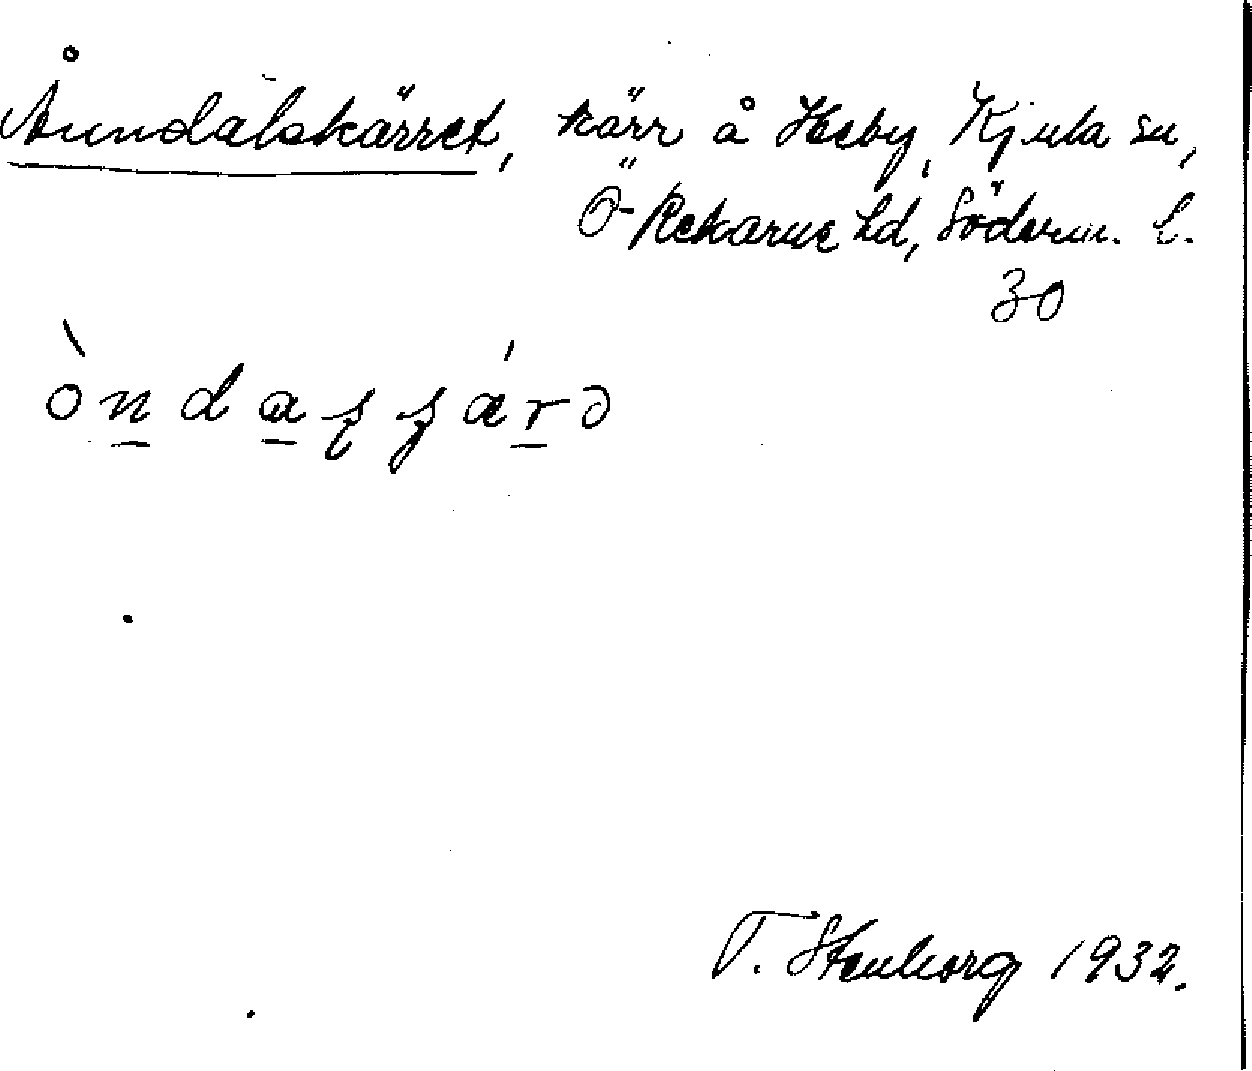 Åundalskärret, kärr å Heby, Kjula sn,
Ö-Rekarne hd, Söderm. l.
30
T. Stenborg 1932.